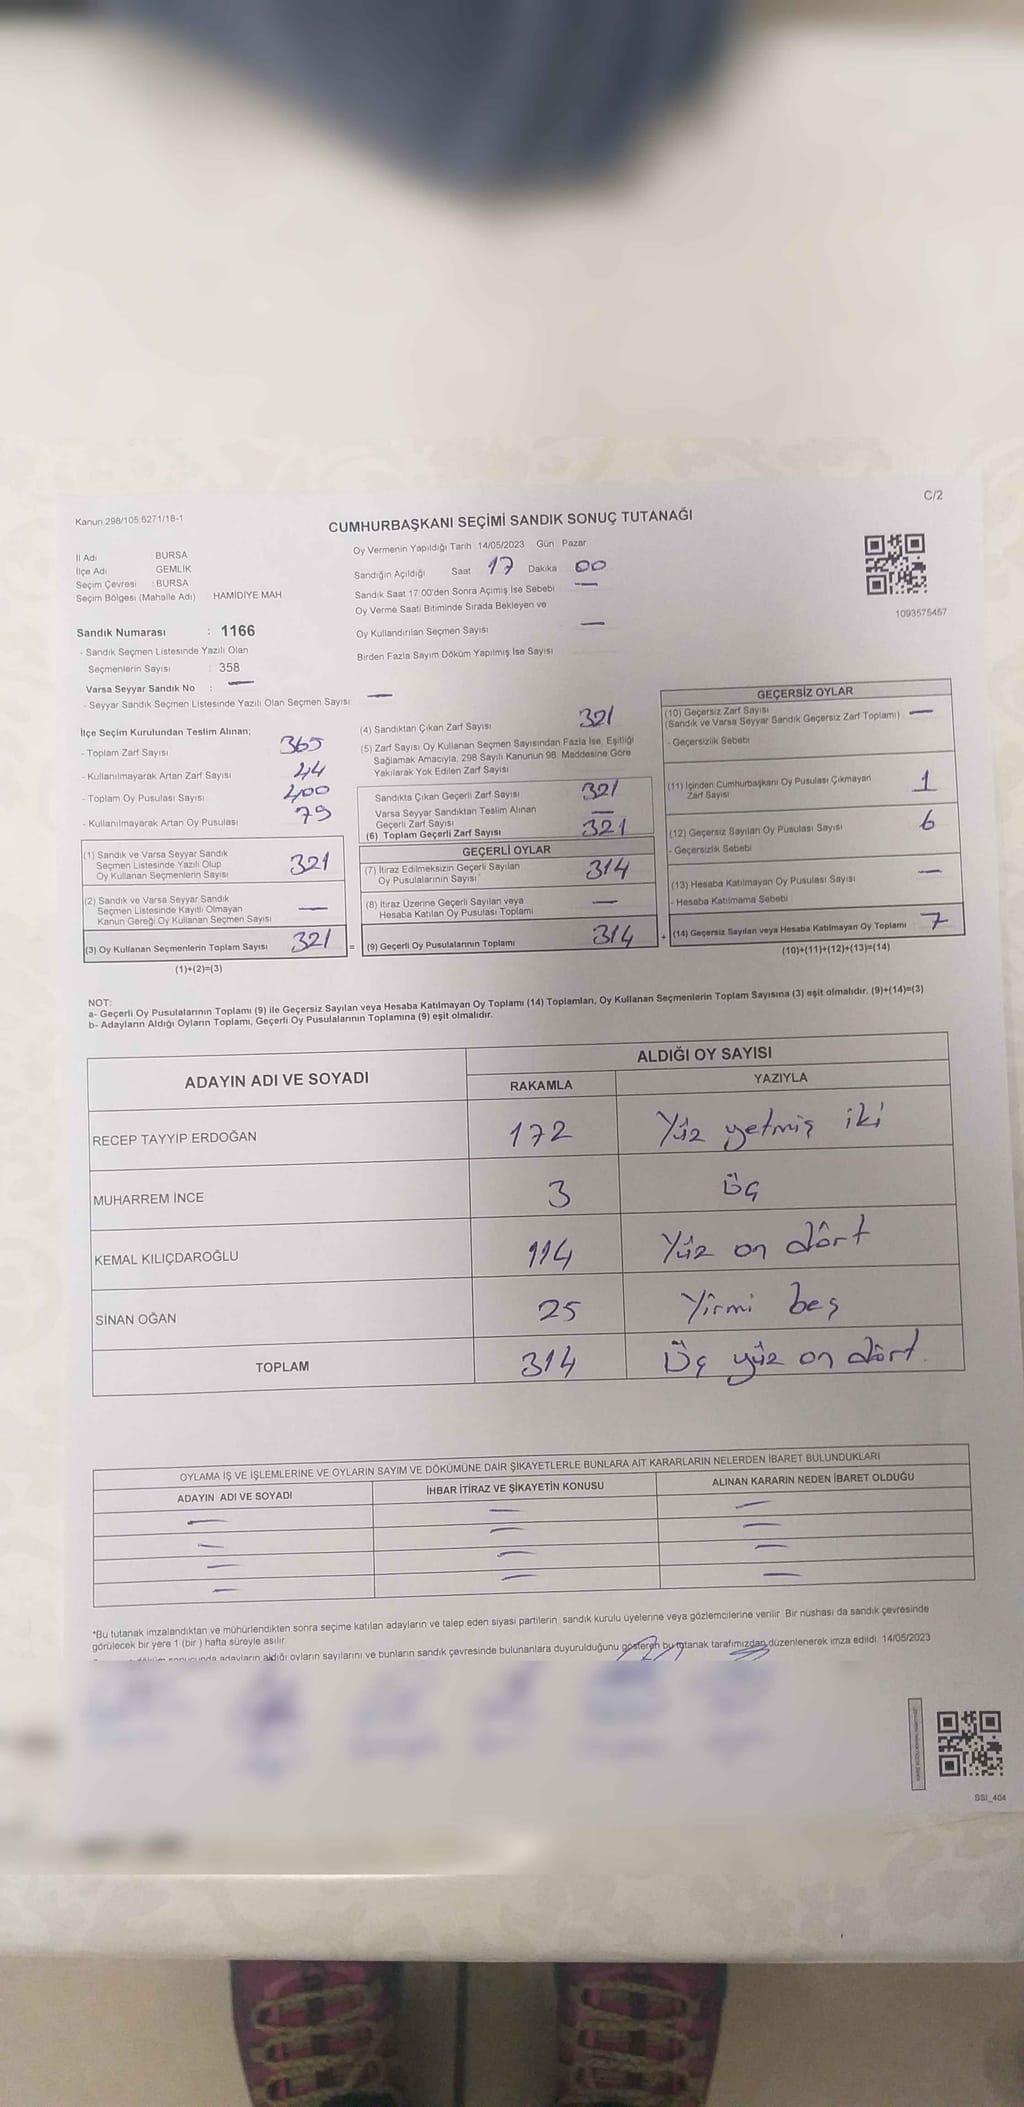 C/2
Kanun 298/105 6271/16-1
CUMHURBAŞKANI SEÇİMİ SANDIK SONUÇ TUTANAĞI
İl Adı BURSA
İlçe Adı GEMLİK
Seçim Çevresi : BURSA
Seçim Bölgesi (Mahalle Adı) HAMİDİYE MAH
Sandık Numarası : 1166
- Sandık Seçmen Listesinde Yazılı Olan
Seçmenlerin Sayısı : 358
Varsa Seyyar Sandık No : —
- Seyyar Sandık Seçmen Listesinde Yazılı Olan Seçmen Sayısı: —
Oy Vermenin Yapıldığı Tarih 14/05/2023 Gün Pazar
Sandığın Açıldığı Saat 17 Dakika 00
Sandık Saat 17:00'den Sonra Açımış İse Sebebi —
Oy Verme Saati Bitiminde Sırada Bekleyen ve
Oy Kullandırılan Seçmen Sayısı —
Birden Fazla Sayım Döküm Yapılmış İse Sayısı
1093575457
İlçe Seçim Kurulundan Teslim Alınan;
- Toplam Zarf Sayısı 365
- Kullanılmayarak Artan Zarf Sayısı 44
- Toplam Oy Pusulası Sayısı 400
- Kullanılmayarak Artan Oy Pusulası 79
(1) Sandık ve Varsa Seyyar Sandık
Seçmen Listesinde Yazılı Olup
Oy Kullanan Seçmenlerin Sayısı 321
(2) Sandık ve Varsa Seyyar Sandık
Seçmen Listesinde Kayıtlı Olmayan
Kanun Gereği Oy Kullanan Seçmen Sayısı —
(3) Oy Kullanan Seçmenlerin Toplam Sayısı 321 =
(1)+(2)=(3)
(4) Sandıktan Çıkan Zarf Sayısı 321
(5) Zarf Sayısı Oy Kullanan Seçmen Sayısından Fazla İse, Eşitliği
Sağlamak Amacıyla, 298 Sayılı Kanunun 98. Maddesine Göre
Yakılarak Yok Edilen Zarf Sayısı —
Sandıkta Çıkan Geçerli Zarf Sayısı 321
Varsa Seyyar Sandıktan Teslim Alınan
Geçerli Zarf Sayısı —
(6) Toplam Geçerli Zarf Sayısı 321
GEÇERLİ OYLAR
(7) İtiraz Edilmeksizin Geçerli Sayılan
Oy Pusulalarının Sayısı 314
(8) İtiraz Üzerine Geçerli Sayılan veya
Hesaba Katılan Oy Pusulası Toplamı —
(9) Geçerli Oy Pusulalarının Toplamı 314 +
GEÇERSİZ OYLAR
(10) Geçersiz Zarf Sayısı
(Sandık ve Varsa Seyyar Sandık Geçersiz Zarf Toplamı) —
- Geçersizlik Sebebi
(11) İçinden Cumhurbaşkanı Oy Pusulası Çıkmayan
Zarf Sayısı 1
(12) Geçersiz Sayılan Oy Pusulası Sayısı 6
- Geçersizlik Sebebi
(13) Hesaba Katılmayan Oy Pusulası Sayısı —
- Hesaba Katılmama Sebebi
(14) Geçersiz Sayılan veya Hesaba Katılmayan Oy Toplamı 7
(10)+(11)+(12)+(13)=(14)
NOT:
a- Geçerli Oy Pusulalarının Toplamı (9) ile Geçersiz Sayılan veya Hesaba Katılmayan Oy Toplamı (14) Toplamları, Oy Kullanan Seçmenlerin Toplam Sayısına (3) eşit olmalıdır. (9)+(14)=(3)
b- Adayların Aldığı Oyların Toplamı, Geçerli Oy Pusulalarının Toplamına (9) eşit olmalıdır.
ADAYIN ADI VE SOYADI
ALDIĞI OY SAYISI
RAKAMLA YAZIYLA
RECEP TAYYİP ERDOĞAN 172 Yüz yetmiş iki
MUHARREM İNCE 3 Üç
KEMAL KILIÇDAROĞLU 114 Yüz on dört
SİNAN OĞAN 25 Yirmi beş
TOPLAM 314 Üç yüz on dört.
OYLAMA İŞ VE İŞLEMLERİNE VE OYLARIN SAYIM VE DÖKÜMÜNE DAİR ŞİKAYETLERLE BUNLARA AİT KARARLARIN NELERDEN İBARET BULUNDUKLARI
ADAYIN ADI VE SOYADI İHBAR İTİRAZ VE ŞİKAYETİN KONUSU ALINAN KARARIN NEDEN İBARET OLDUĞU
— — —
— — —
— — —
— — —
*Bu tutanak imzalandıktan ve mühürlendikten sonra seçime katılan adayların ve talep eden siyasi partilerin sandık kurulu üyelerine veya gözlemcilerine verilir. Bir nüshası da sandık çevresinde
görülecek bir yere 1 (bir) hafta süreyle asılır.
adayların aldığı oyların sayılarını ve bunların sandık çevresinde bulunanlara duyurulduğunu gösteren bu tutanak tarafımızdan düzenlenerek imza edildi. 14/05/2023
SSI_404